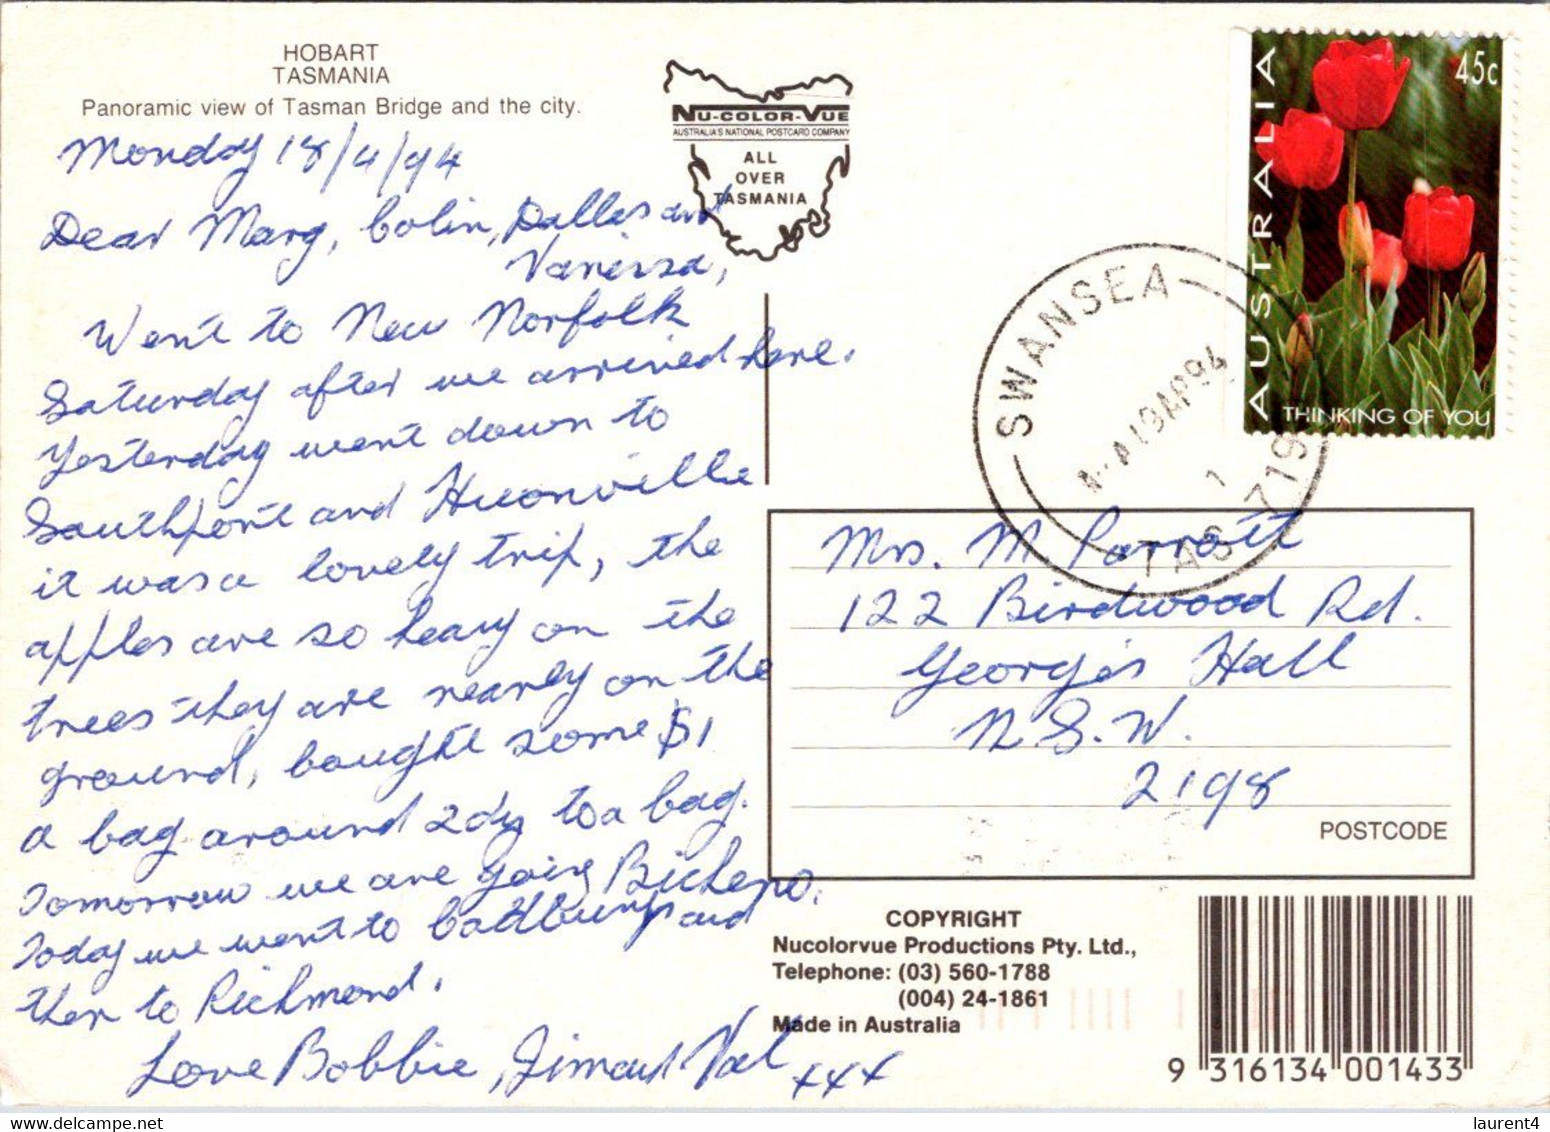 HOBART
TASMANIA
Panoramic view of Tasman Bridge and the city.
Monday 18/4/94
Dear Marg, Colin, Dallas and
Vanessa,
Went to New Norfolk
Saturday after we arrived here.
Yesterday went down to
Southport and Huonville
it was a lovely trip, the
apples are so heavy on the
trees they are nearly on the
ground, bought some $1
a bag around 2 to a bag.
Tomorrow we are going Bicheno.
Today we went to and
then to Richmond.
Love Bobbie, Jim and Val
xxx
NU-COLOR-VUE
AUSTRALIA'S NATIONAL POSTCARD COMPANY
ALL
OVER
TASMANIA
AUSTRALIA
45c
THINKING OF YOU
SWANSEA
19AP94
1
TAS 719
Mrs. M Parrott
122 Birdwood Rd.
Georges Hall
N.S.W.
2198
POSTCODE
COPYRIGHT
Nucolorvue Productions Pty. Ltd.,
Telephone: (03) 560-1788
(004) 24-1861
Made in Australia
9 316134 001433
www.delcampe.net
laurent4